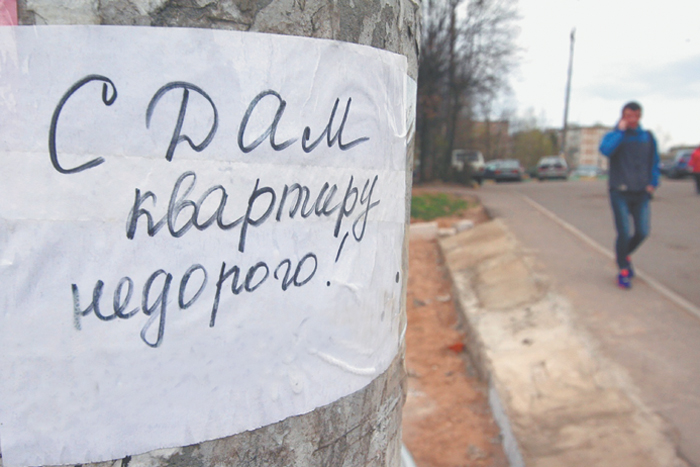 Сдам
квартиру
недорого!